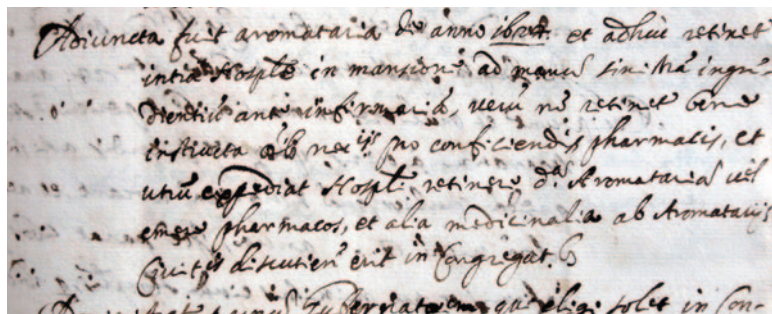 Adiuncta fuit aromataria de anno et adhuc retinet
intra Hosple in mansione ad manū sinistrā ingre-
dientiū ante infirmariā, verū nō retinet bene
instructa oībus necijs pro conficiendis pharmacis, et
utrū expediat Hospli retinere dā Aromatariā vel
emere pharmacos, et alia medicinalia ab Aromatarijs
Civitis discutien̄ erit in Congregat.
Gubernatorem qui eligi solet in Con-